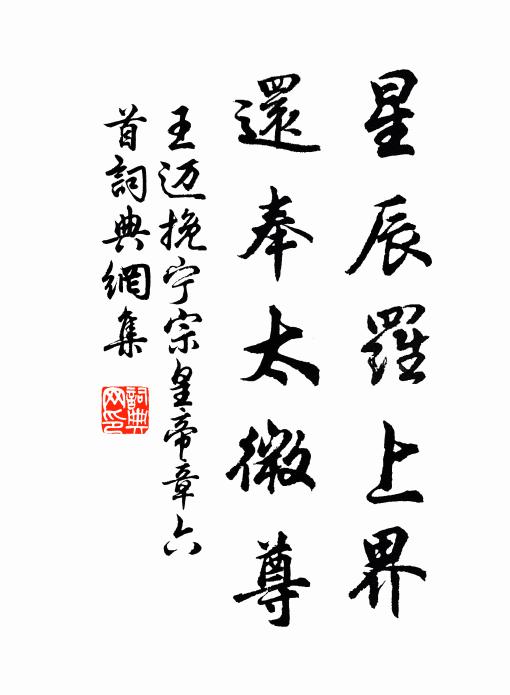 星辰羅上界
還奉太微尊
王迈挽宁宗皇帝章六
首詞典網集
詞典
网印